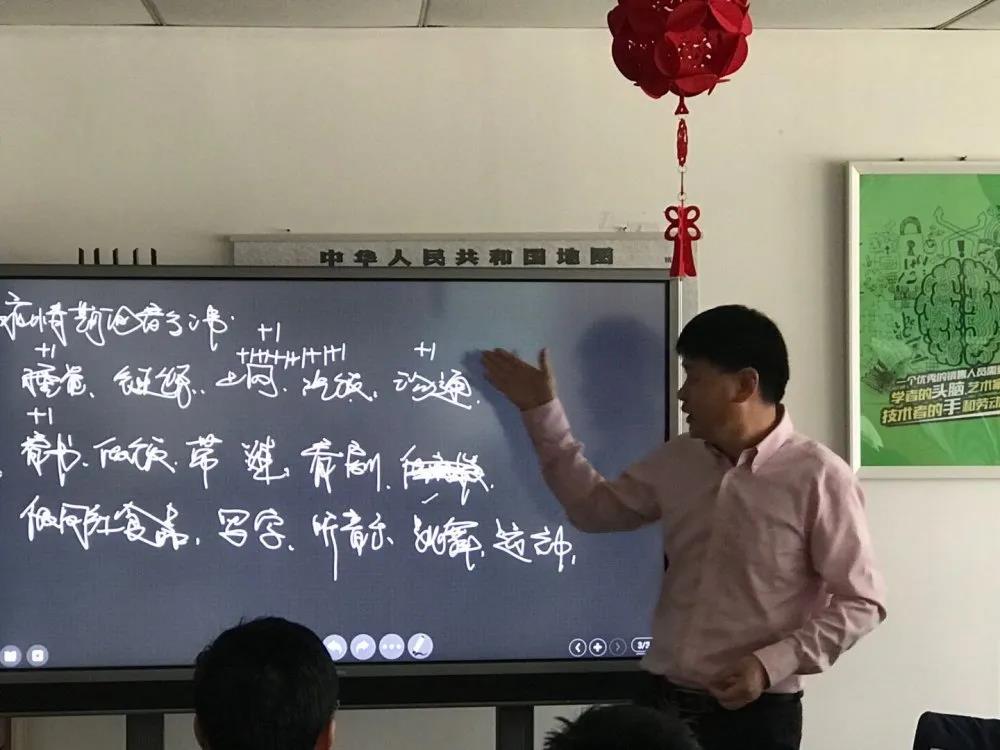 中华人民共和国地图
疫情期
+1
+1 +1
睡觉、锻炼、上网、做饭、沟通、
+1
看书、做饭、带娃、看剧、
食品、写字、听音乐、跳舞、运动,
一个优秀的销售人员需
学者的头脑艺术
技术者的手和劳动
3/3